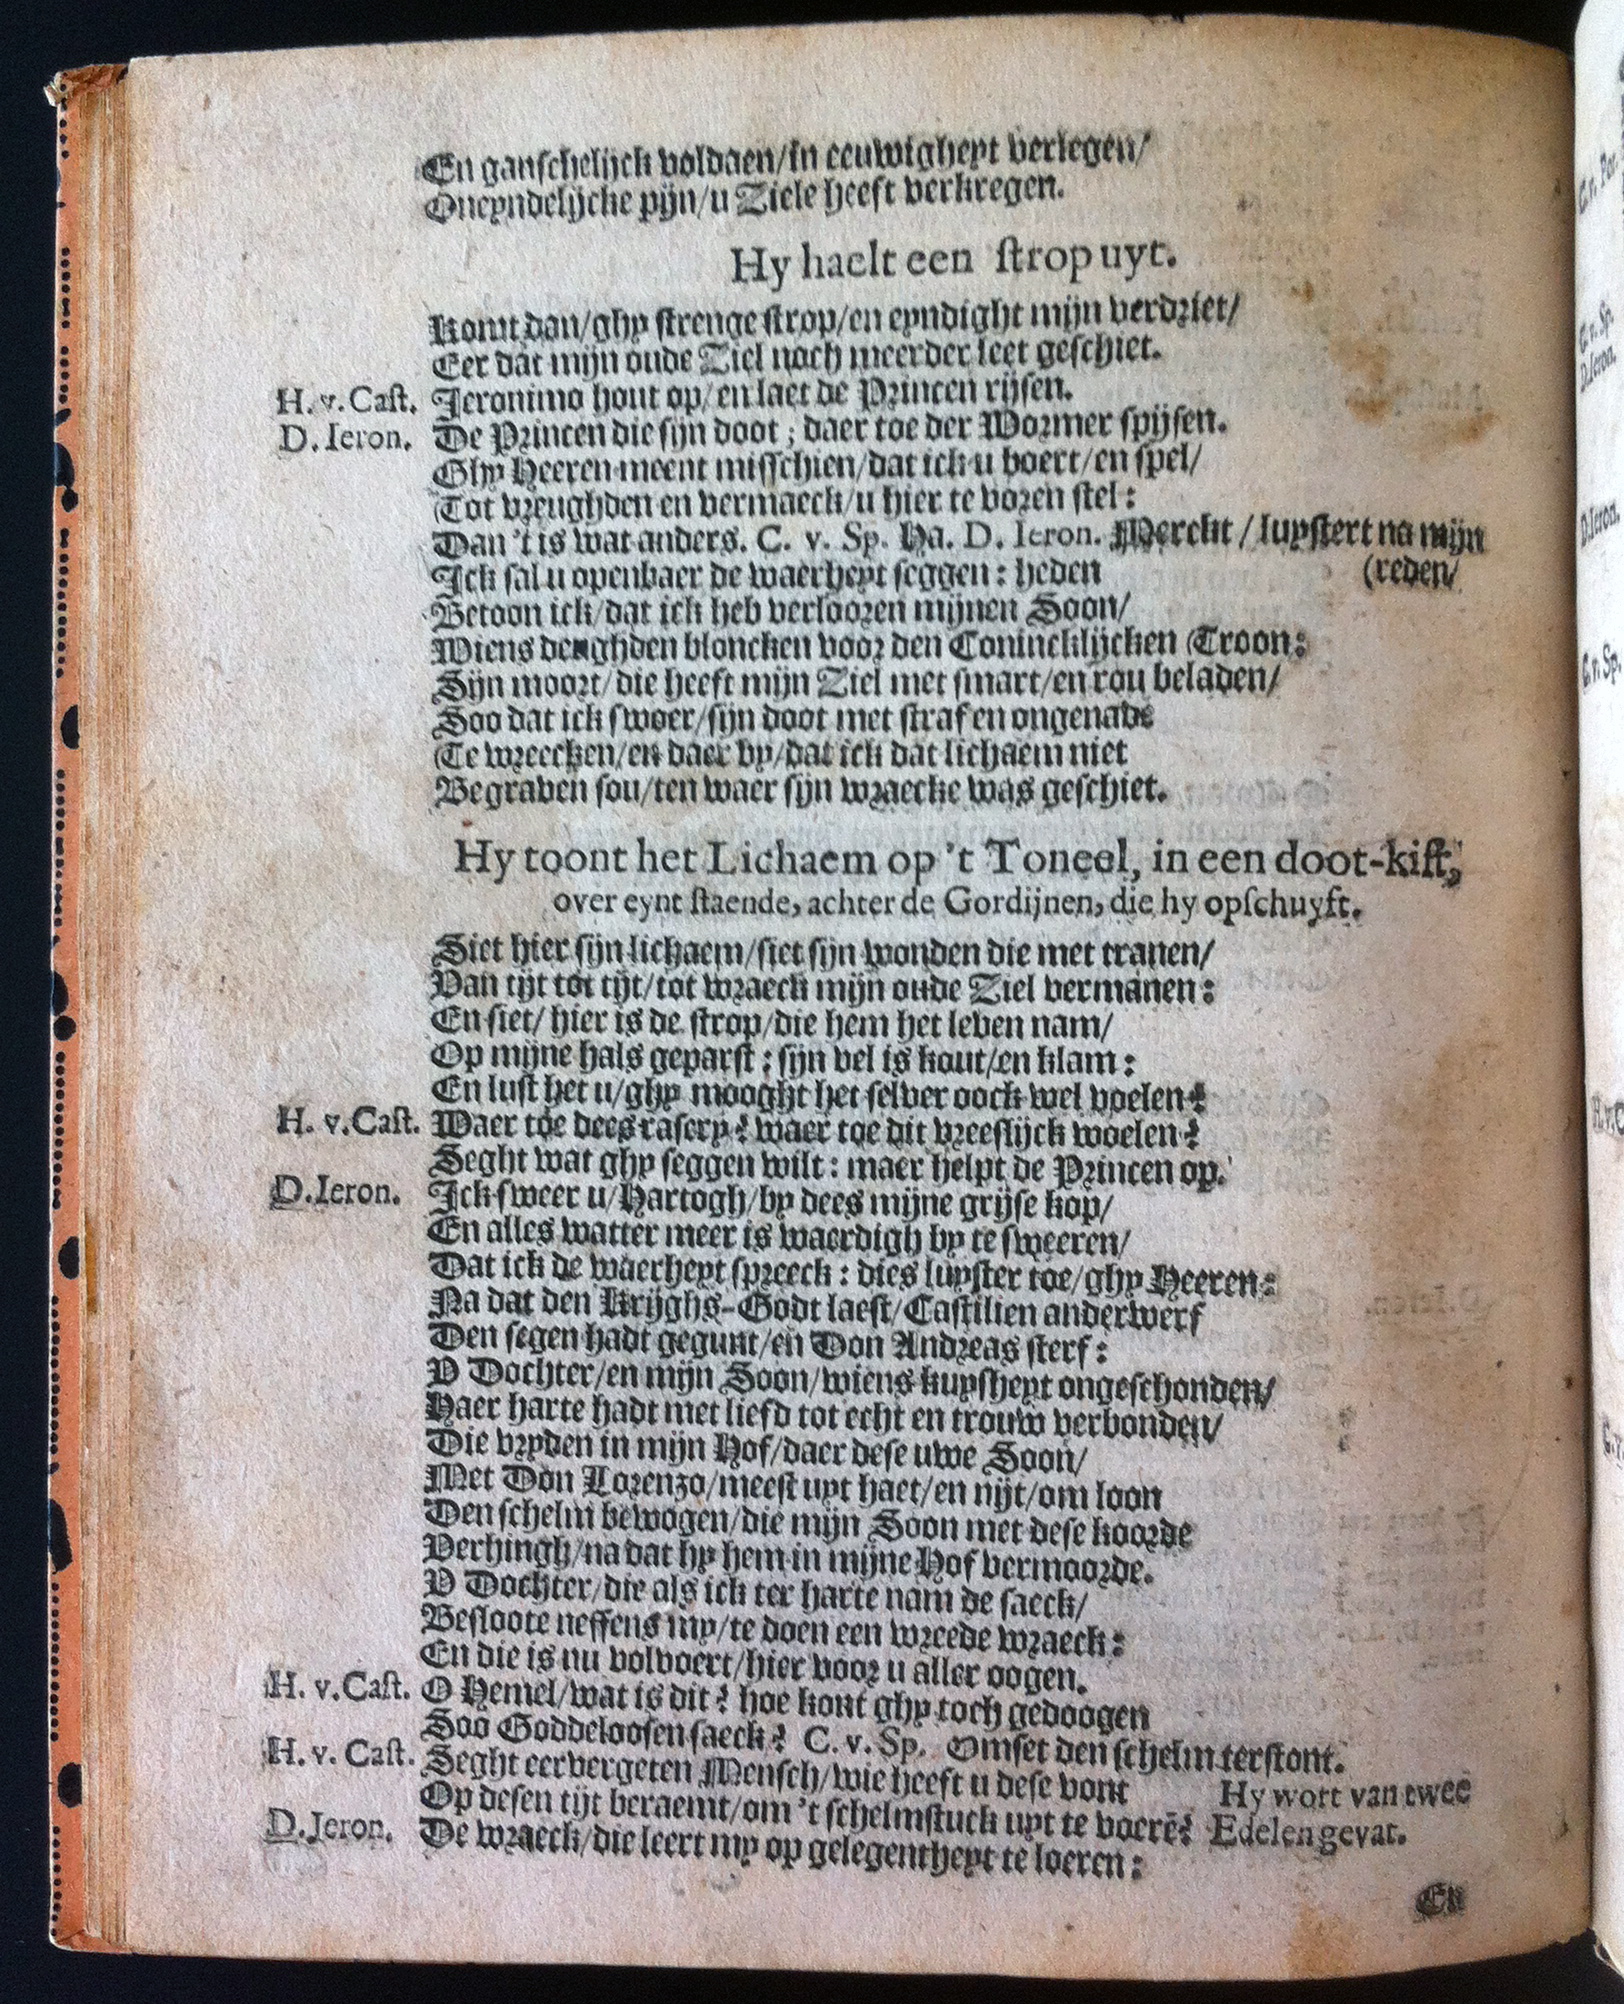 En ganschelijck voldaen/in eeuwigheyt verlegen/
Oneyndelijcke pijn/u Ziele heeft verkregen.
Hy haelt een strop uyt.
Komt dan/ghy strenge strop/en eyndight mijn verdriet/
Eer dat mijn oude Ziel noch meerder leet geschiet.
H. v. Cast. Jeronimo hout op/en laet de Princen rijsen.
D. Ieron. De Princen die sijn doot; daer toe der Wormer spijsen.
Ghy Heeren meent misschien/dat ick u boert/en spel/
Tot vreughden en vermaeck/u hier te voren stel:
Dan 't is wat anders. C. v. Sp. Ha. D. Ieron. Merckt/luystert na mijn
Ick sal u openbaer de waerheyt seggen: heden (reden/
Betoon ick/dat ick heb verlooren mijnen Soon/
Wiens deughden bloncken voor den Conincklijcken Troon:
Sijn moort/die heeft mijn Ziel met smart/en rou beladen/
Soo dat ick swoer/sijn doot met straf en ongenade
Te wreecken/en daer by/dat ick dat lichaem niet
Begraven sou/ten waer sijn wraecke was geschiet.
Hy toont het Lichaem op 't Toneel, in een doot-kist,
over eynt staende, achter de Gordijnen, die hy opschuyft.
Siet hier sijn lichaem/siet sijn wonden die met tranen/
Van tijt tot tijt/tot wraeck mijn oude Ziel vermanen:
En siet/hier is de strop/die hem het leven nam/
Op mijne hals geparst: sijn vel is kout/en klam:
En lust het u/ghy mooght het selver oock wel voelen?
H. v. Cast. Waer toe dees rasery? waer toe dit vreeslijck woelen?
Seght wat ghy seggen wilt: maer helpt de Princen op.
D. Ieron. Ick sweer u/Hartogh/by dees mijne grijse kop/
En alles watter meer is waerdigh by te sweeren/
Dat ick de waerheyt spreeck: dies luyster toe/ghy Heeren:
Na dat den Krijghs-Godt laest/Castilien anderwerf
Den segen hadt gegunt/en Don Andreas sterf:
V Dochter/en mijn Soon/wiens kuysheyt ongeschonden/
Haer harte hadt met liefd tot echt en trouw verbonden/
Die vryden in mijn Hof/daer dese uwe Soon/
Met Don Lorenzo/meest uyt haet/en nijt/om loon
Den schelm bewogen/die mijn Soon met dese koorde
Verhingh/na dat hy hem in mijne Hof vermoorde.
V Dochter/die als ick ter harte nam de saeck/
Besloote neffens my/te doen een wreede wraeck:
En die is nu volvoert/hier voor u aller oogen.
H. v. Cast. O Hemel/wat is dit? hoe kont ghy toch gedoogen
Soo Goddeloosen saeck? C. v. Sp. Omset den schelm terstont.
H. v. Cast. Seght eervergeten Mensch/wie heeft u dese vont Hy wort van twee
Op desen tijt beraemt/om 't schelmstuck uyt te voerē? Edelen gevat.
D. Jeron. De wraeck/die leert my op gelegentheyt te loeren:
En